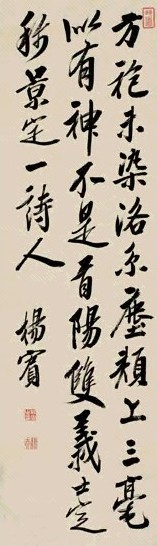 方袍未染洛京塵頰上三毫
似有神不是首陽雙義士定
稱景定一詩人
楊賓